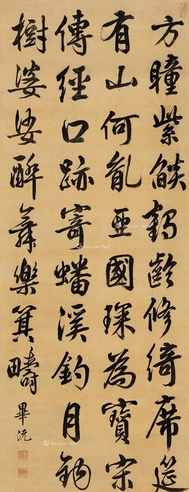 方瞳紫燄鶴齡修綺席筵
有山何亞國琛為寶宗
傳經口跡寄蟠溪釣月
樹婆娑醉舞樂箕疇
畢沅